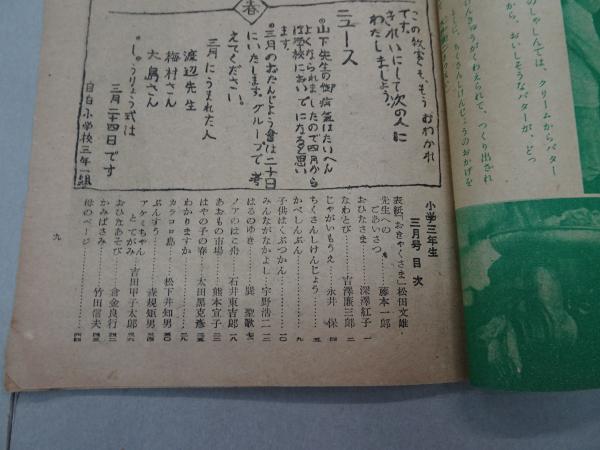 春
この教室とも、もうおわかれ
です。
きれいにして次の人に
わたしましょう。
ニュース
◎山下先生の御病気はたいへん
よくなられましたので四月から
は学校においでになると思い
ます。
◎三月のおたんじょう會は二十日
にいたします。グループで考
えてください。
三月にうまれた人
渡辺先生
梅村さん
大島さん
◎しゅうりょう式は
三月二十四日です
目白小学校三年一組
小学三年生
三月号目次
表紙「おきゃくさま」松田文雄
先生への
ごあいさつ……藤本一郎
おひなさま……深澤紅子 一
なわとび……吉澤廉三郎 二
じゃがいもうえ……永井保 四
ちくさんしけんじょう…… 五
かべしんぶん…… 九
子供はくぶつかん…… 一〇
みんながなかよし……宇野浩二 一三
はるのゆき……巽聖歌 一七
ノアのはこ舟……石井東吉郎 一八
あおもの市場……熊本宜子
はやの子の春……太田黒克彦
わかりますか……
カラコロ島……松下井知男 三〇
ぶんすう……森規矩男
アケミちゃん
とてがみ……吉田甲子太郎
おひなあそび……倉金良行
かみばさみ……竹田信夫
母のページ……
九
のしゃしんでは、クリームからバター
から、おいしそうなバターが、どっ
けんきゅうがくわえられて、つくり出され
ように、ちくさんしけんじょうのおかげを